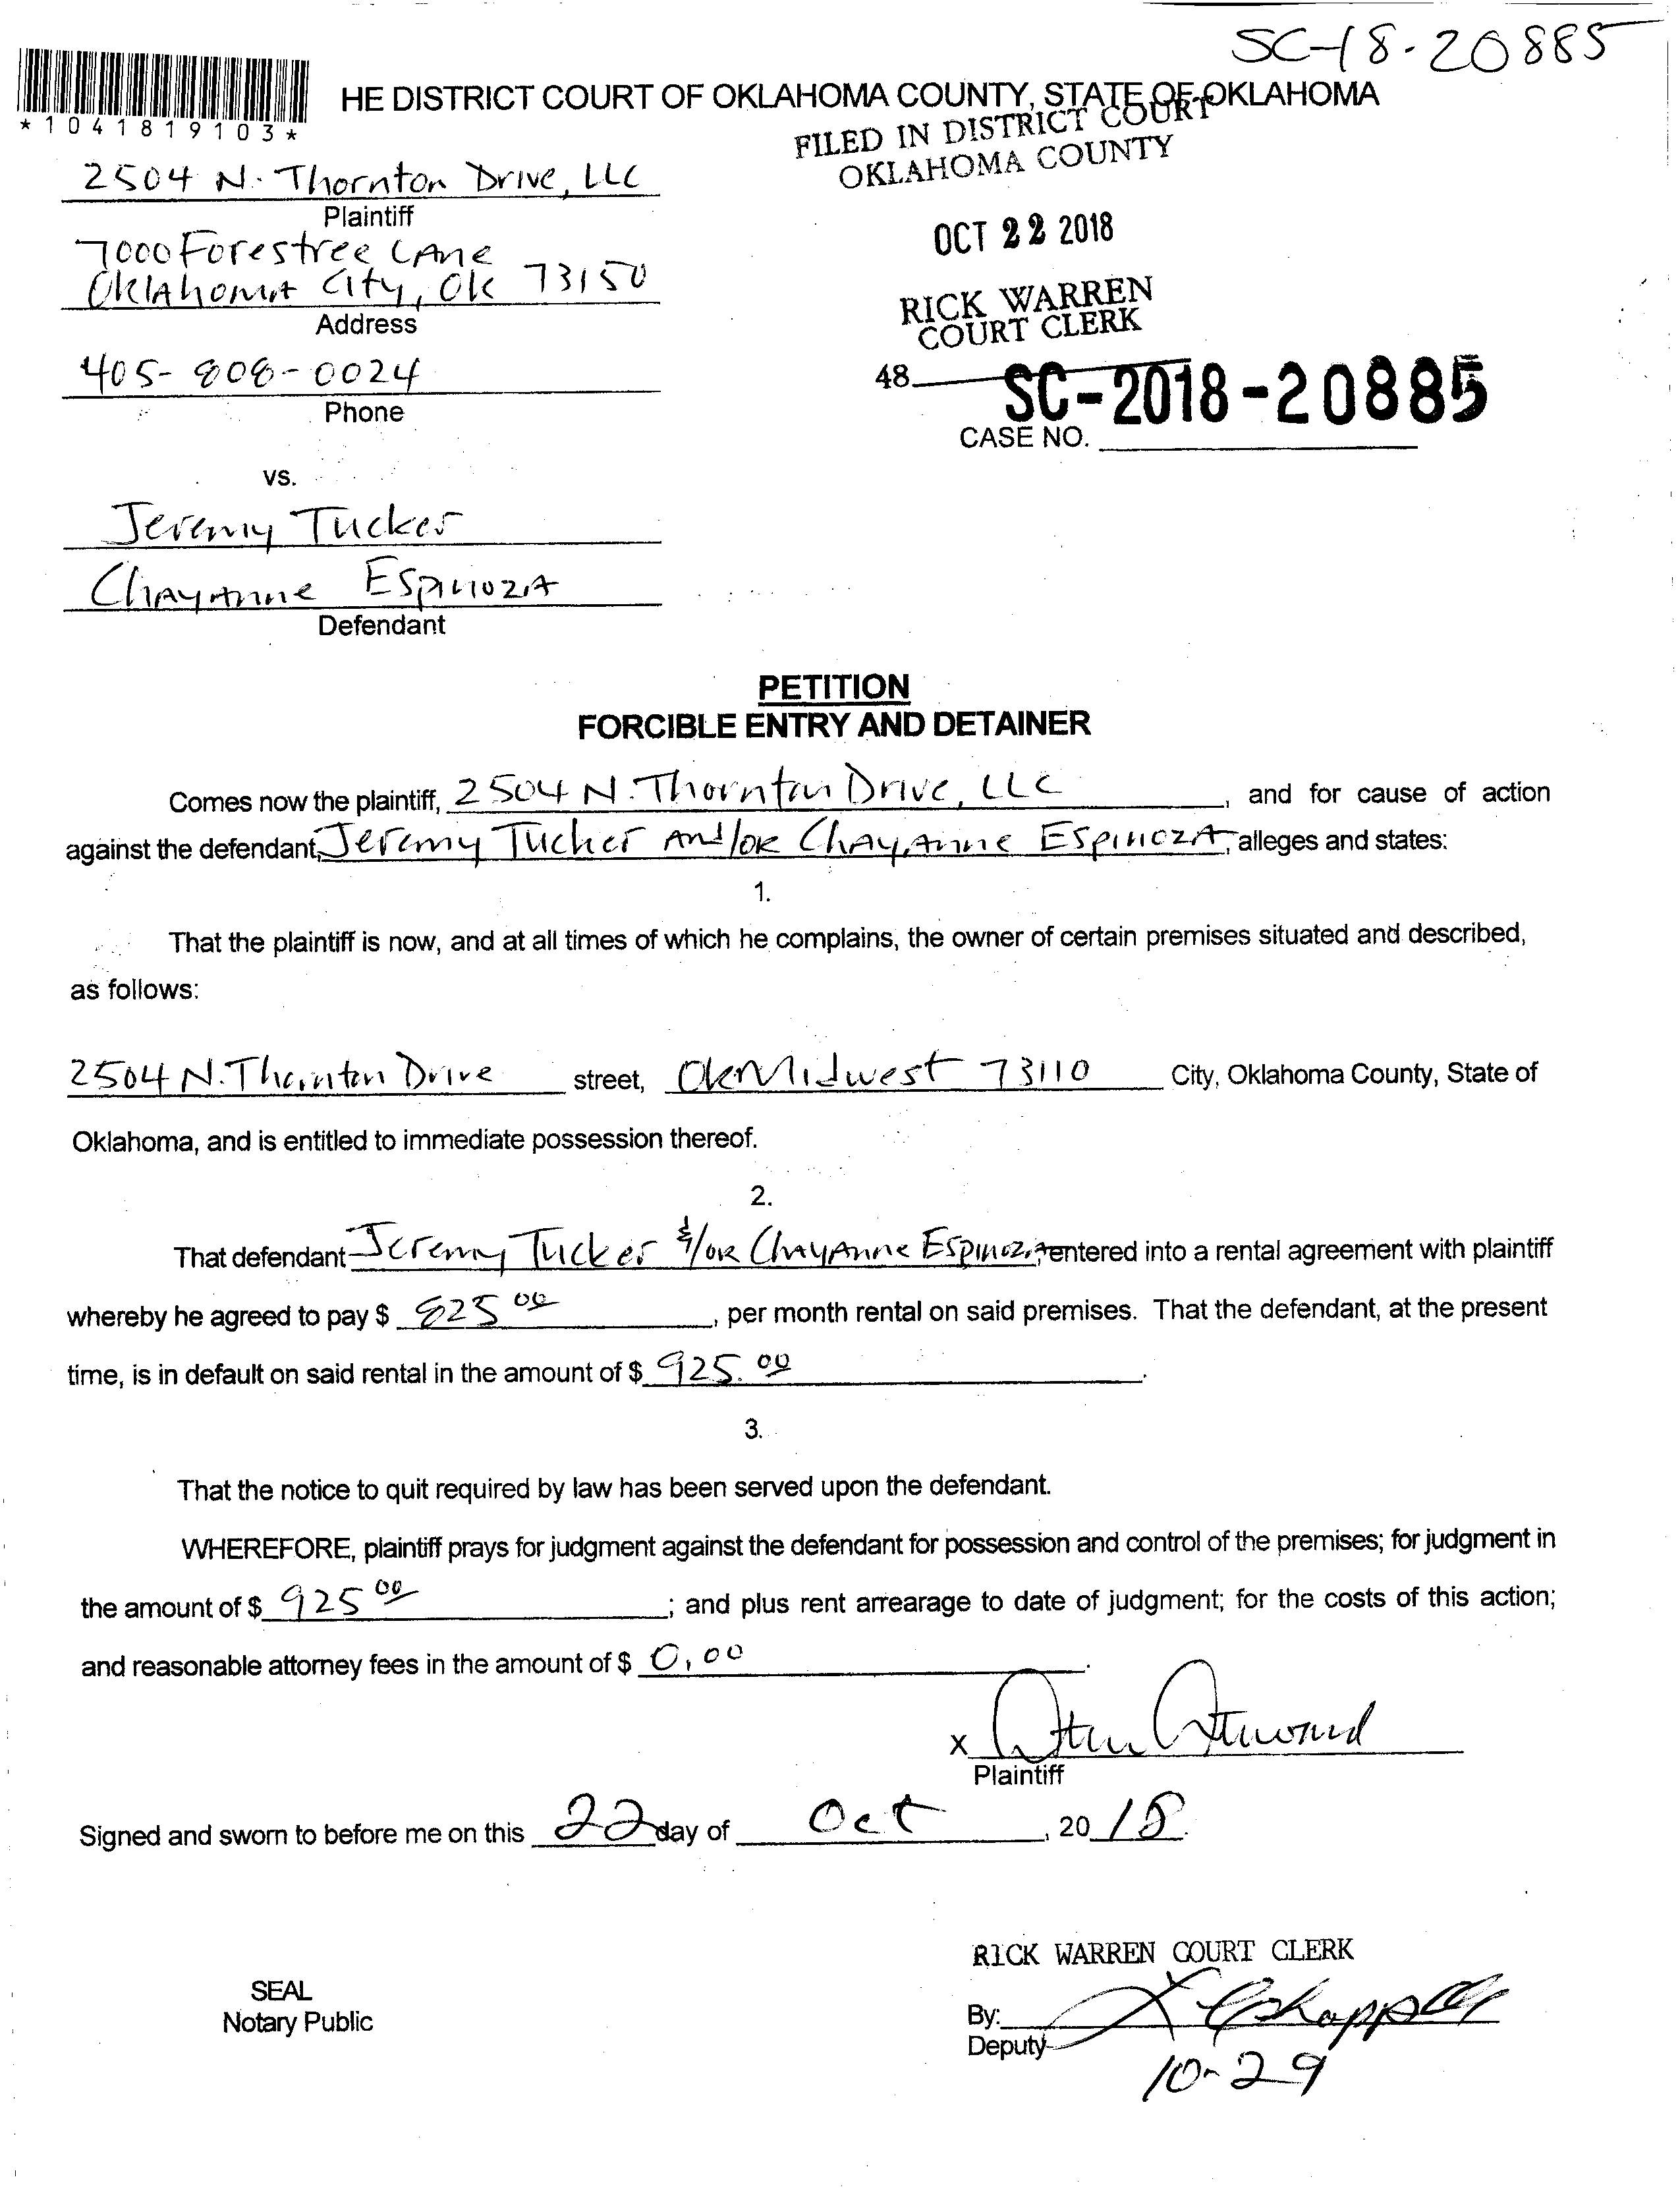 SC-18-20885
*1041819103*
HE DISTRICT COURT OF OKLAHOMA COUNTY, STATE OF OKLAHOMA
FILED IN DISTRICT COURT
OKLAHOMA COUNTY
2504 N. Thornton Drive, LLC
Plaintiff
OCT 22 2018
7000 Forestree Lane
Oklahoma City, Ok 73150
Address
RICK WARREN
COURT CLERK
405-808-0024
Phone
48
SC-2018-20885
CASE NO.
vs.
Jeremy Tucker
Chayanne Espinoza
Defendant
PETITION
FORCIBLE ENTRY AND DETAINER
Comes now the plaintiff, 2504 N. Thornton Drive, LLC, and for cause of action
against the defendant, Jeremy Tucker And/or Chayanne Espinoza, alleges and states:
1.
That the plaintiff is now, and at all times of which he complains, the owner of certain premises situated and described,
as follows:
2504 N. Thornton Drive street, Midwest 73110 City, Oklahoma County, State of
Oklahoma, and is entitled to immediate possession thereof.
2.
That defendant Jeremy Tucker &/or Chayanne Espinoza, entered into a rental agreement with plaintiff
whereby he agreed to pay $ 825 00, per month rental on said premises. That the defendant, at the present
time, is in default on said rental in the amount of $ 925.00.
3.
That the notice to quit required by law has been served upon the defendant.
WHEREFORE, plaintiff prays for judgment against the defendant for possession and control of the premises; for judgment in
the amount of $ 925 00; and plus rent arrearage to date of judgment; for the costs of this action;
and reasonable attorney fees in the amount of $ 0.00.
X
Plaintiff
Signed and sworn to before me on this 22 day of Oct, 2018.
RICK WARREN COURT CLERK
SEAL
Notary Public
By:
Deputy
10-29